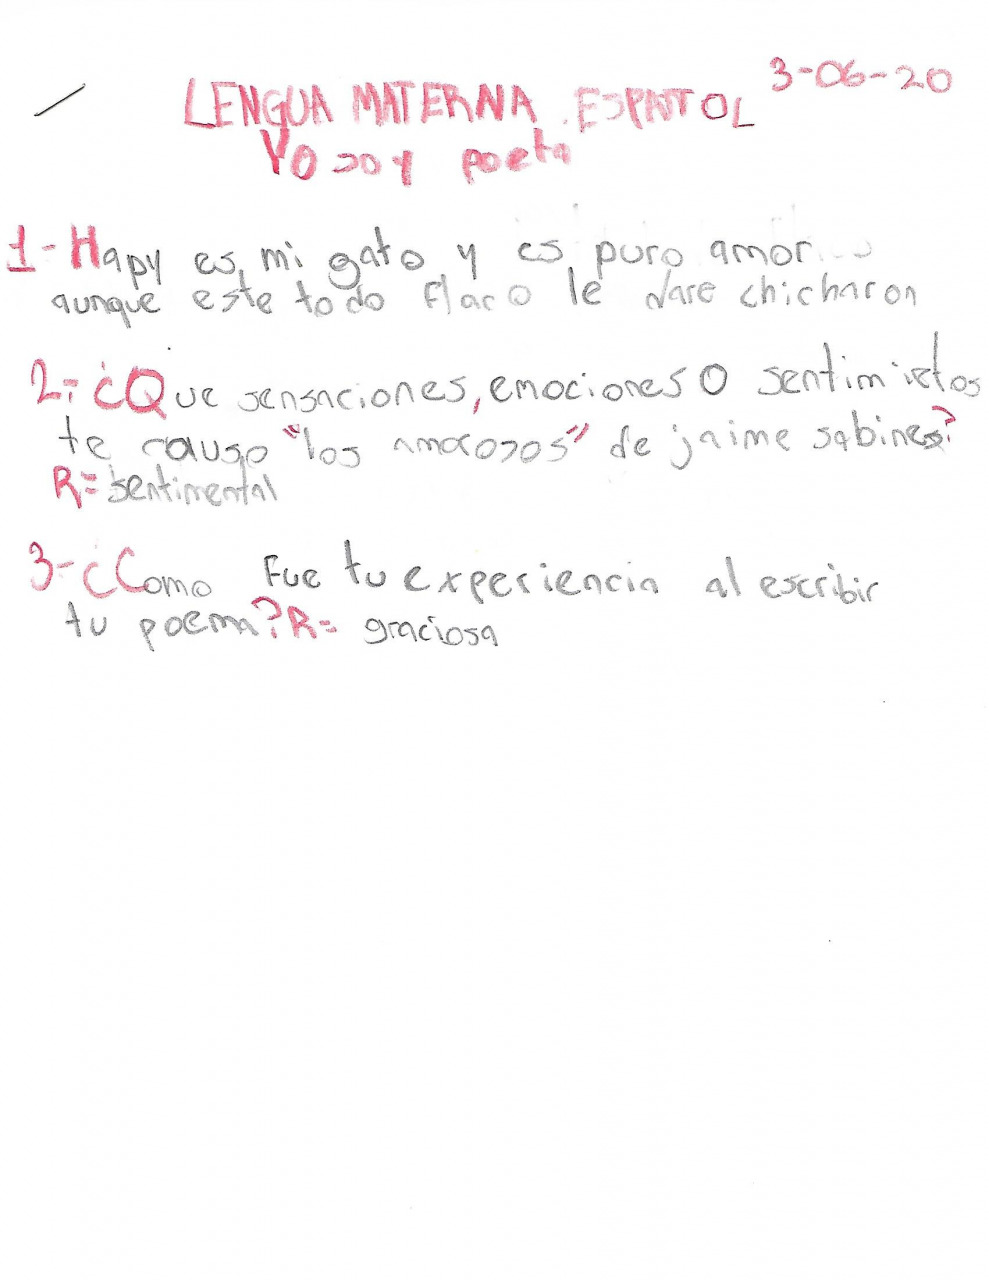 3-06-20
LENGUA MATERNA. ESPAÑOL
Yo soy poeta
1-Hapy es mi gato y es puro amor...
aunque este todo flaco le dare chicharon
2-¿Que sensaciones, emociones o sentimietos
te causo "los amorosos" de jaime sabines?
R= sentimental
3-¿Como Fue tu experiencia al escribir
tu poema? R= graciosa